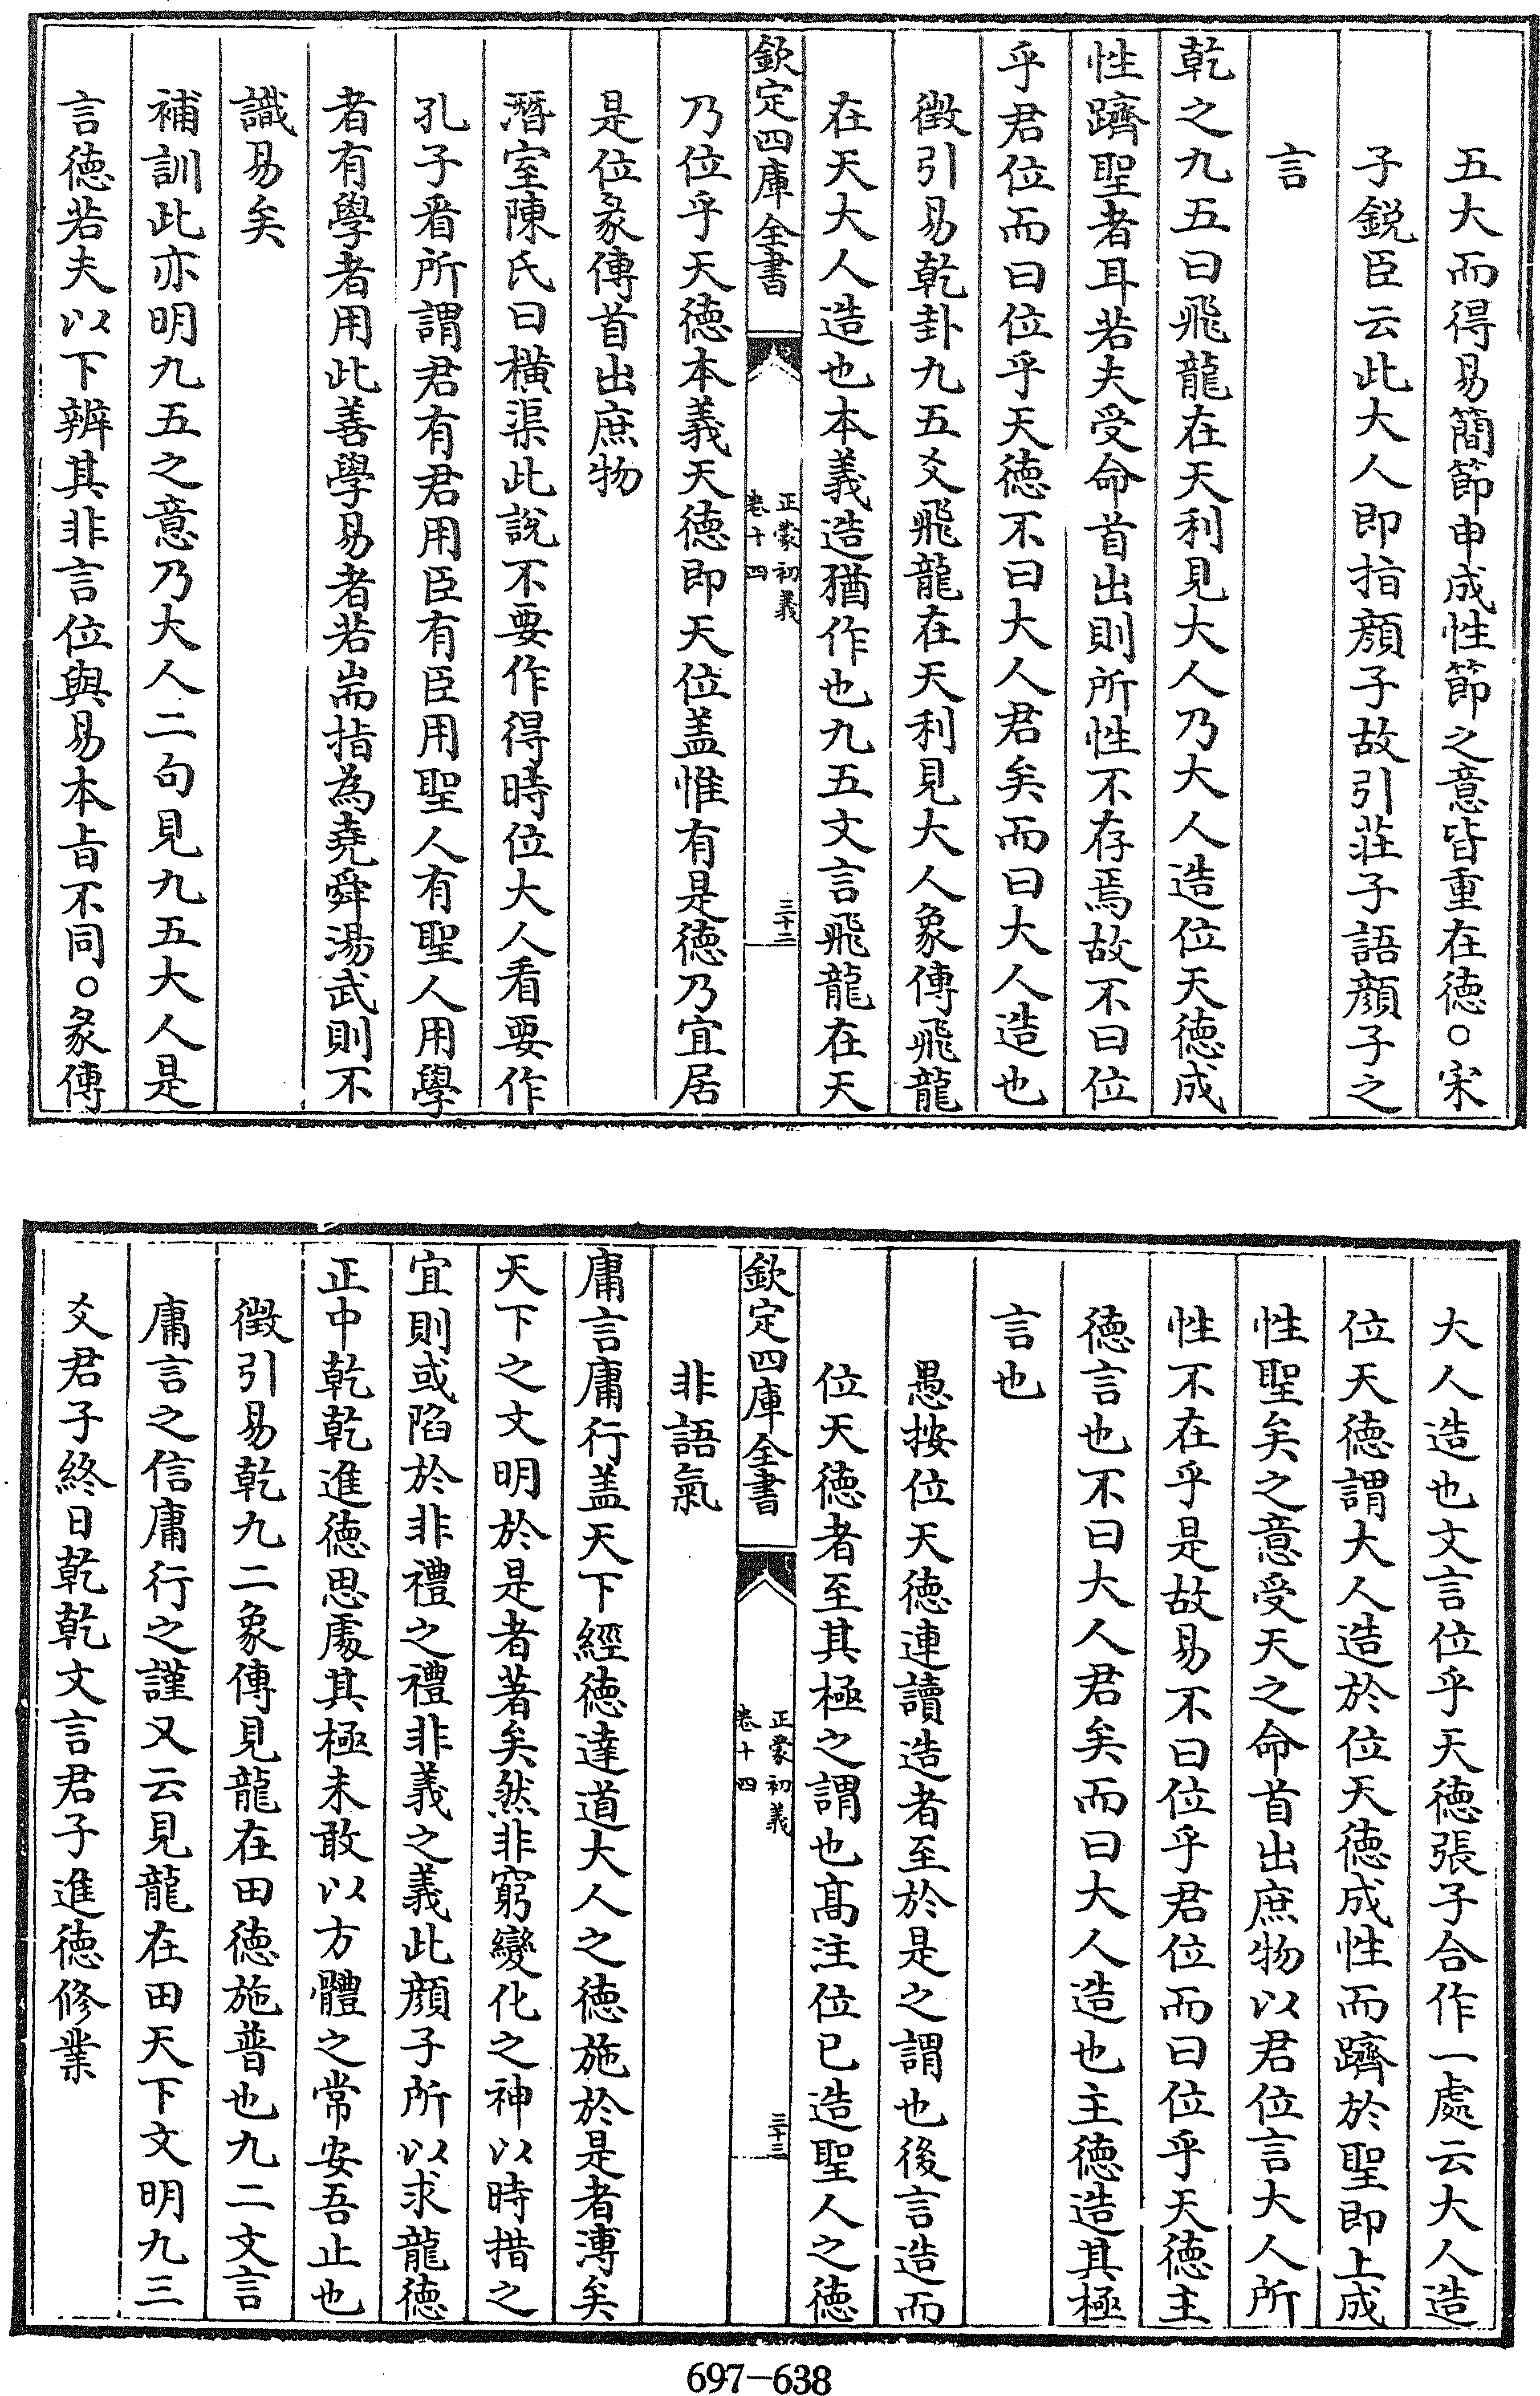 五大而得易簡節申成性節之意皆重在徳○宋
子鋭臣云此大人即指顔子故引莊子語顔子之
言
乾之九五曰飛龍在天利見大人乃大人造位天徳成
性躋聖者耳若夫受命首出則所性不存焉故不曰位
乎君位而曰位乎天徳不曰大人君矣而曰大人造也
徴引易乾卦九五爻飛龍在天利見大人象傳飛龍
在天大人造也本義造猶作也九五文言飛龍在天
欽定四庫全書
正蒙初義
卷十四
三十二
乃位乎天徳本義天徳即天位盖惟有是徳乃宜居
是位彖傳首出庶物
潛室陳氏曰橫渠此說不要作得時位大人看要作
孔子看所謂君有君用臣有臣用聖人有聖人用學
者有學者用此善學易者若耑指為堯舜湯武則不
識易矣
補訓此亦明九五之意乃大人二句見九五大人是
言徳若夫以下辨其非言位與易本旨不同○彖傳
大人造也文言位乎天徳張子合作一處云大人造
位天徳謂大人造於位天徳成性而躋於聖即上成
性聖矣之意受天之命首出庶物以君位言大人所
性不在乎是故易不曰位乎君位而曰位乎天徳主
徳言也不曰大人君矣而曰大人造也主徳造其極
言也
愚按位天徳連讀造者至於是之謂也後言造而
位天徳者至其極之謂也髙注位已造聖人之徳
欽定四庫全書
正蒙初義
卷十四
三十三
非語氣
庸言庸行盖天下經徳達道大人之徳施於是者溥矣
天下之文明於是者著矣然非窮變化之神以時措之
宜則或陷於非禮之禮非義之義此顔子所以求龍徳
正中乾乾進徳思處其極未敢以方體之常安吾止也
徴引易乾九二象傳見龍在田徳施普也九二文言
庸言之信庸行之謹又云見龍在田天下文明九三
爻君子終日乾乾文言君子進徳修業
697-638